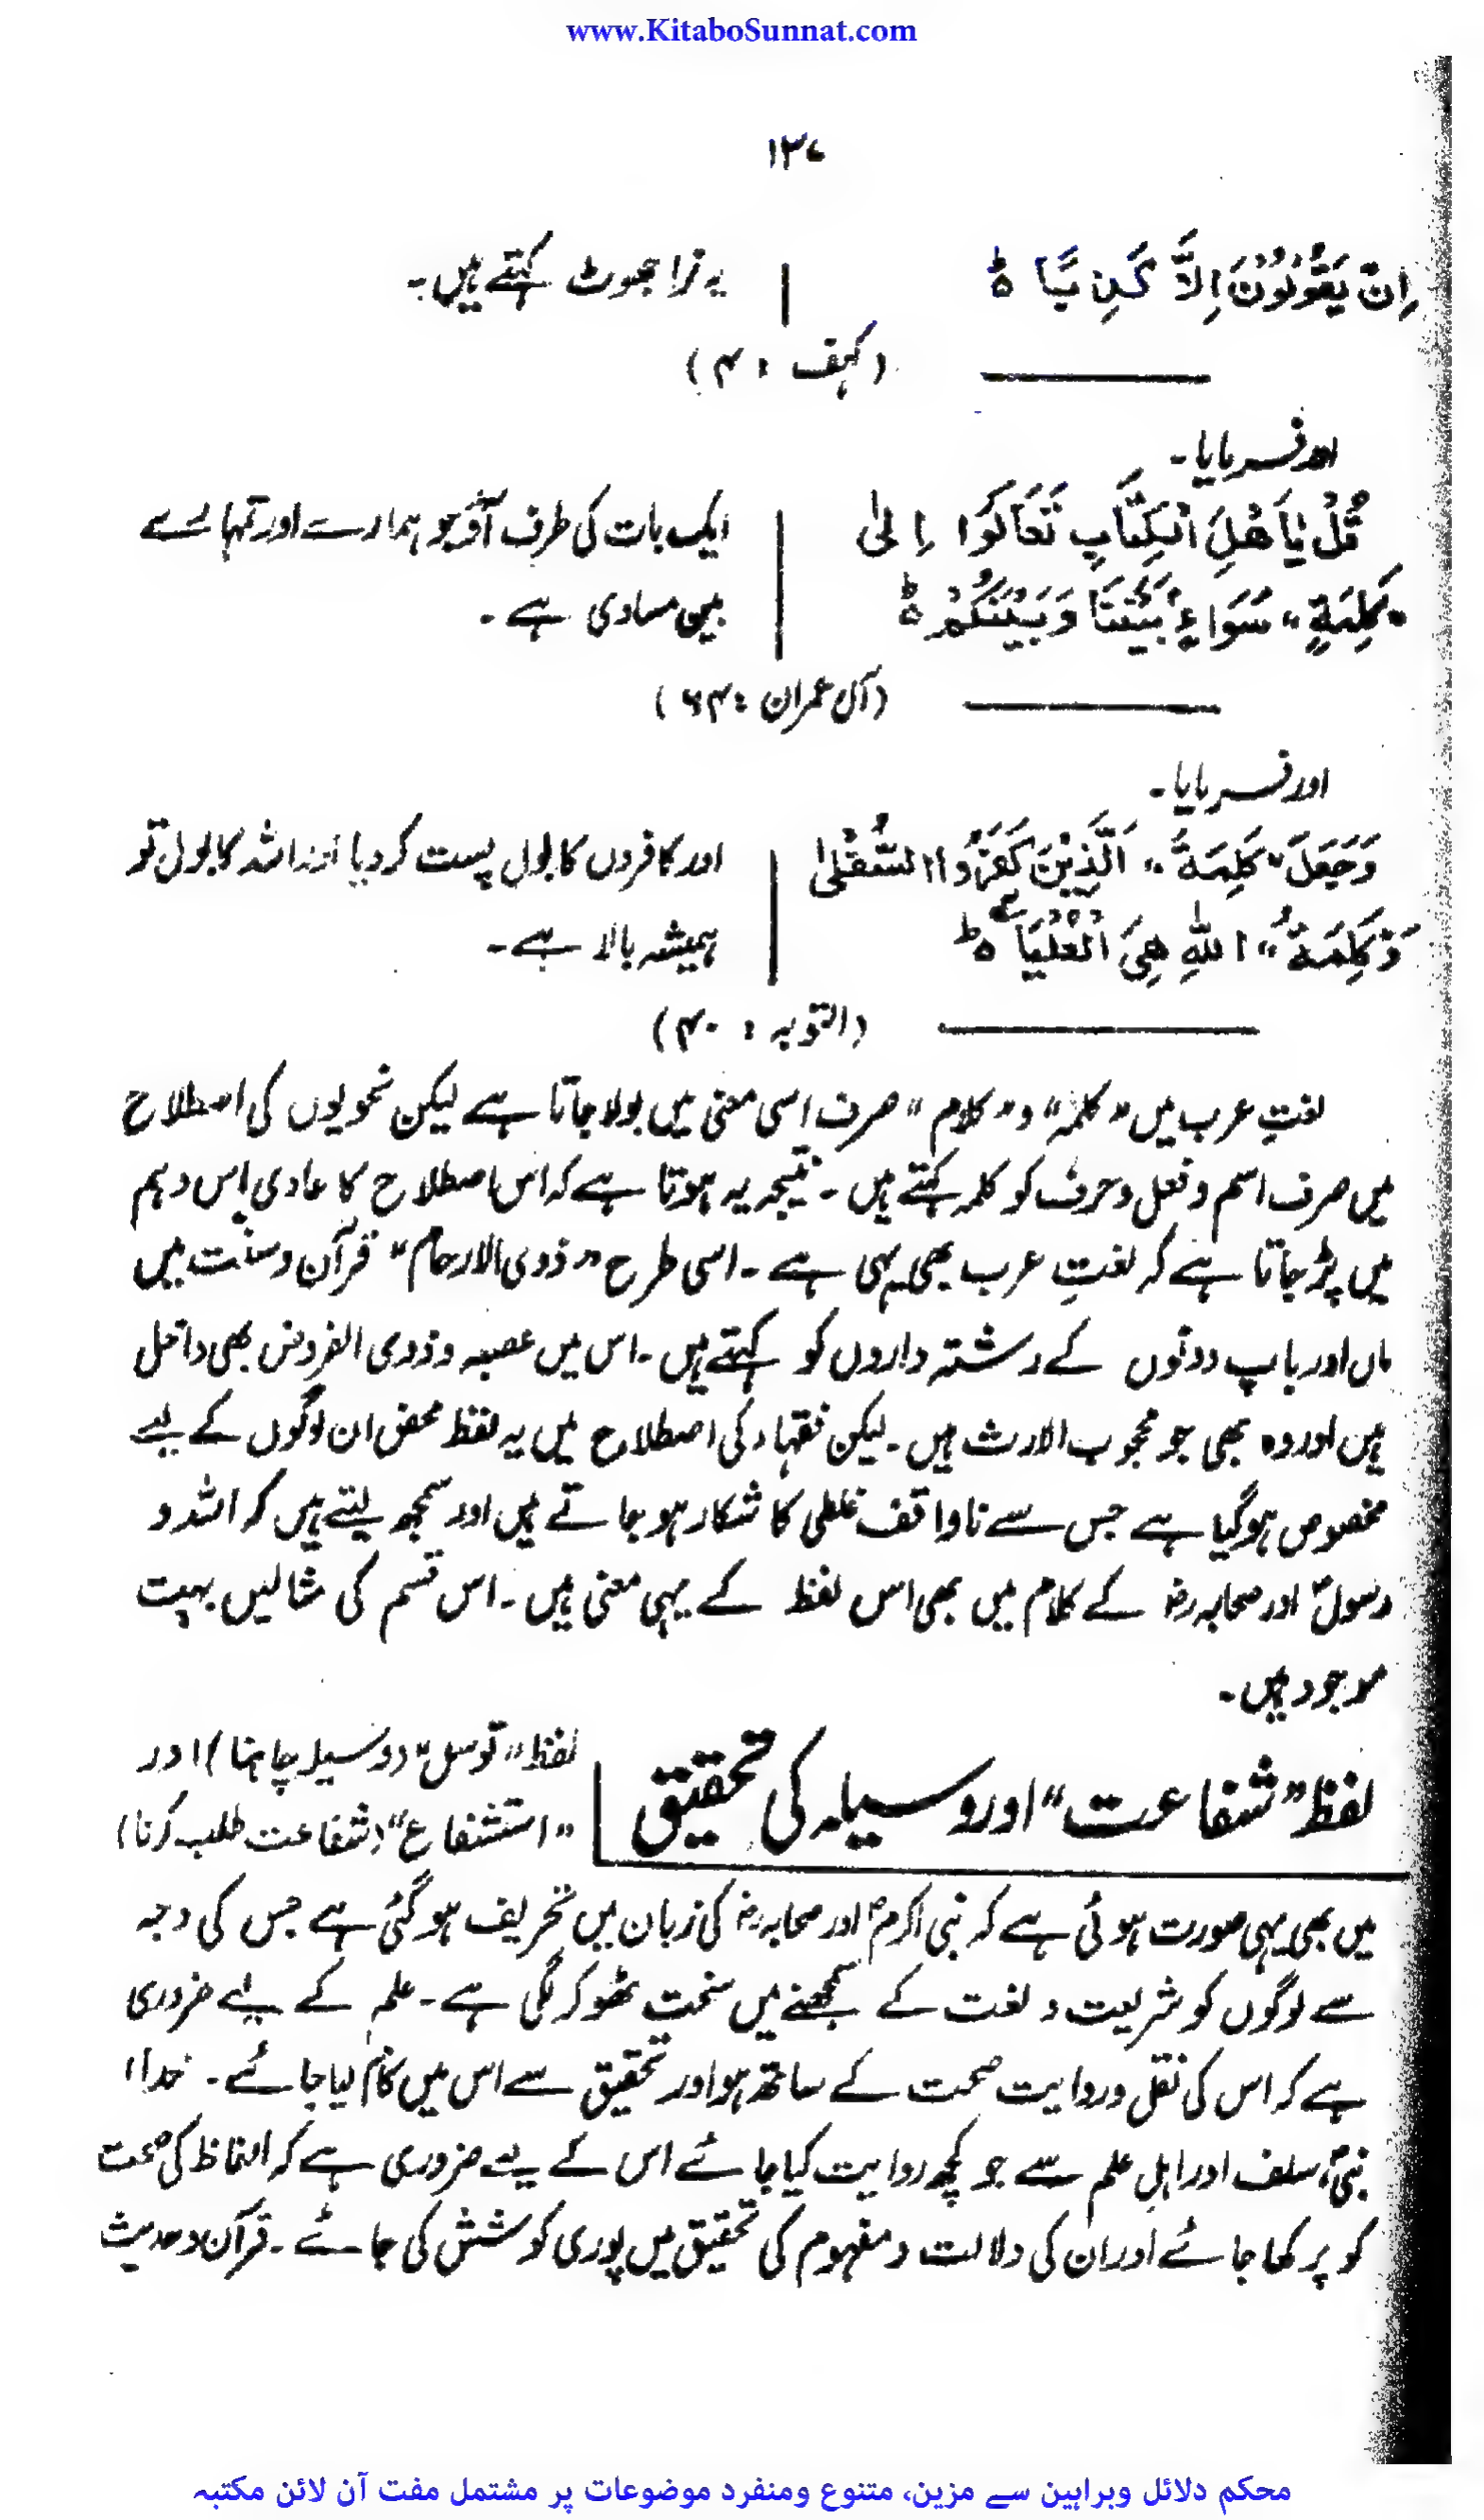 www.KitaboSunnat.com
۱۳۷
اِنْ يَقُوْلُوْنَ اِلَّا كَذِبًا ؕ
یہ نرا جھوٹ کہتے ہیں۔
(کہف : ۴)
اور فرمایا۔
قُلْ يٰاَهْلَ الْكِتَابِ تَعَالَوْا اِلىٰ
ایک بات کی طرف آؤ جو ہمارے اور تمہارے
"كَلِمَةٍ" سَوَاءٍ بَيْنَنَا وَبَيْنَكُمْ ؕ
بیچ مساوی ہے۔
(آل عمران : ۶۴)
اور فرمایا۔
وَجَعَلَ "كَلِمَةَ" الَّذِيْنَ كَفَرُوا السُّفْلىٰ
اور کافروں کا بول پست کر دیا اور اللہ کا بول تو
وَ "كَلِمَةُ" اللّٰهِ هِيَ الْعُلْيَا ؕ
ہمیشہ بالا ہے۔
(التوبہ : ۴۰)
لغتِ عرب میں "کلمہ" و "کلام" صرف اسی معنی میں بولا جاتا ہے لیکن نحویوں کی اصطلاح
میں صرف اسم و فعل و حرف کو کلمہ کہتے ہیں۔ نتیجہ یہ ہوتا ہے کہ اس اصطلاح کا عادی اِس وہم
میں پڑ جاتا ہے کہ لغتِ عرب بھی یہی ہے۔ اسی طرح "ذوی الارحام" قرآن و سنت میں
ماں اور باپ دونوں کے رشتہ داروں کو کہتے ہیں۔ اس میں عصبہ و ذوی الفروض بھی داخل
ہیں اور وہ بھی جو محجوب الارث ہیں۔ لیکن فقہاء کی اصطلاح میں یہ لفظ محض ان لوگوں کے لیے
مخصوص ہو گیا ہے جس سے ناواقف غلطی کا شکار ہو جاتے ہیں اور سمجھ لیتے ہیں کہ اللہ و
رسولؐ اور صحابہ رضؓ کے کلام میں بھی اس لفظ کے یہی معنی ہیں۔ اس قسم کی مثالیں بہت
موجود ہیں۔
لفظ "شفاعت" اور وسیلہ کی تحقیق
لفظ "توسل" (وسیلہ چاہنا) اور
"استشفاع" (شفاعت طلب کرنا)
میں بھی یہی صورت ہوئی ہے کہ نبی اکرمؐ اور صحابہ رضؓ کی زبان میں تحریف ہو گئی ہے جس کی وجہ
سے لوگوں کو شریعت و لغت کے سمجھنے میں سخت ٹھوکر لگی ہے۔ علم کے لیے ضروری
ہے کہ اس کی نقل و روایت صحت کے ساتھ ہو اور تحقیق سے اس میں کام لیا جائے۔ خدا،
نبیؐ، سلف اور اہلِ علم سے جو کچھ روایت کیا جائے اس کے لیے ضروری ہے کہ الفاظ کی صحت
کو پرکھا جائے اور ان کی دلالت و مفہوم کی تحقیق میں پوری کوشش کی جائے۔ قرآن و حدیث
محکم دلائل وبراہین سے مزین، متنوع ومنفرد موضوعات پر مشتمل مفت آن لائن مکتبہ